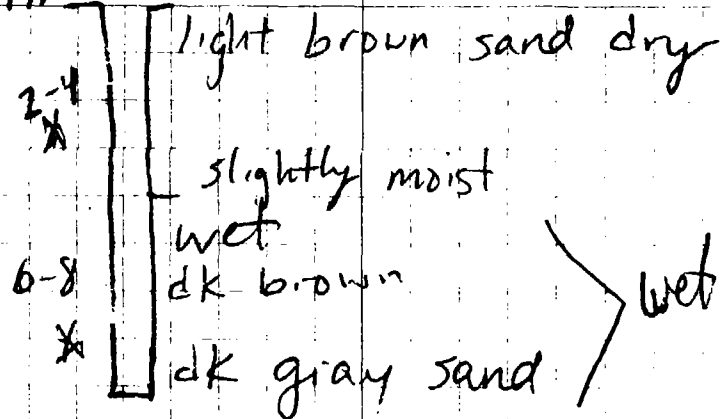 light brown sand dry
2-4
slightly moist
wet
6-8 dk brown
wet
dk gray sand